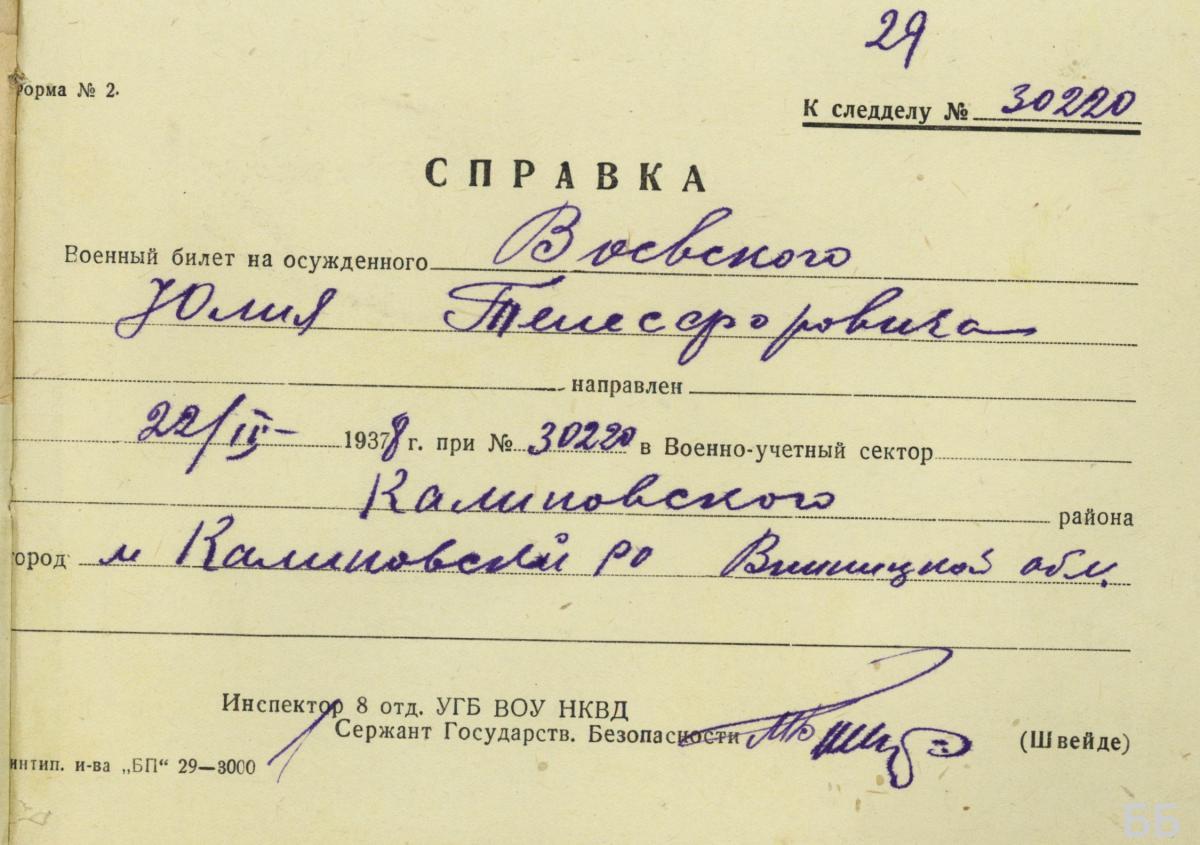 29
форма № 2.
К следделу № 30220
СПРАВКА
Военный билет на осужденного Воевского
Юлия Телесфоровича
направлен
22/III- 1938 г. при № 30220 в Военно-учетный сектор
Калиновского района
город м Калиновский ро Винницкой обл.
Инспектор 8 отд. УГБ ВОУ НКВД
Сержант Государств. Безопасности (Швейде)
интип. и-ва „БП“ 29—3000
ББ